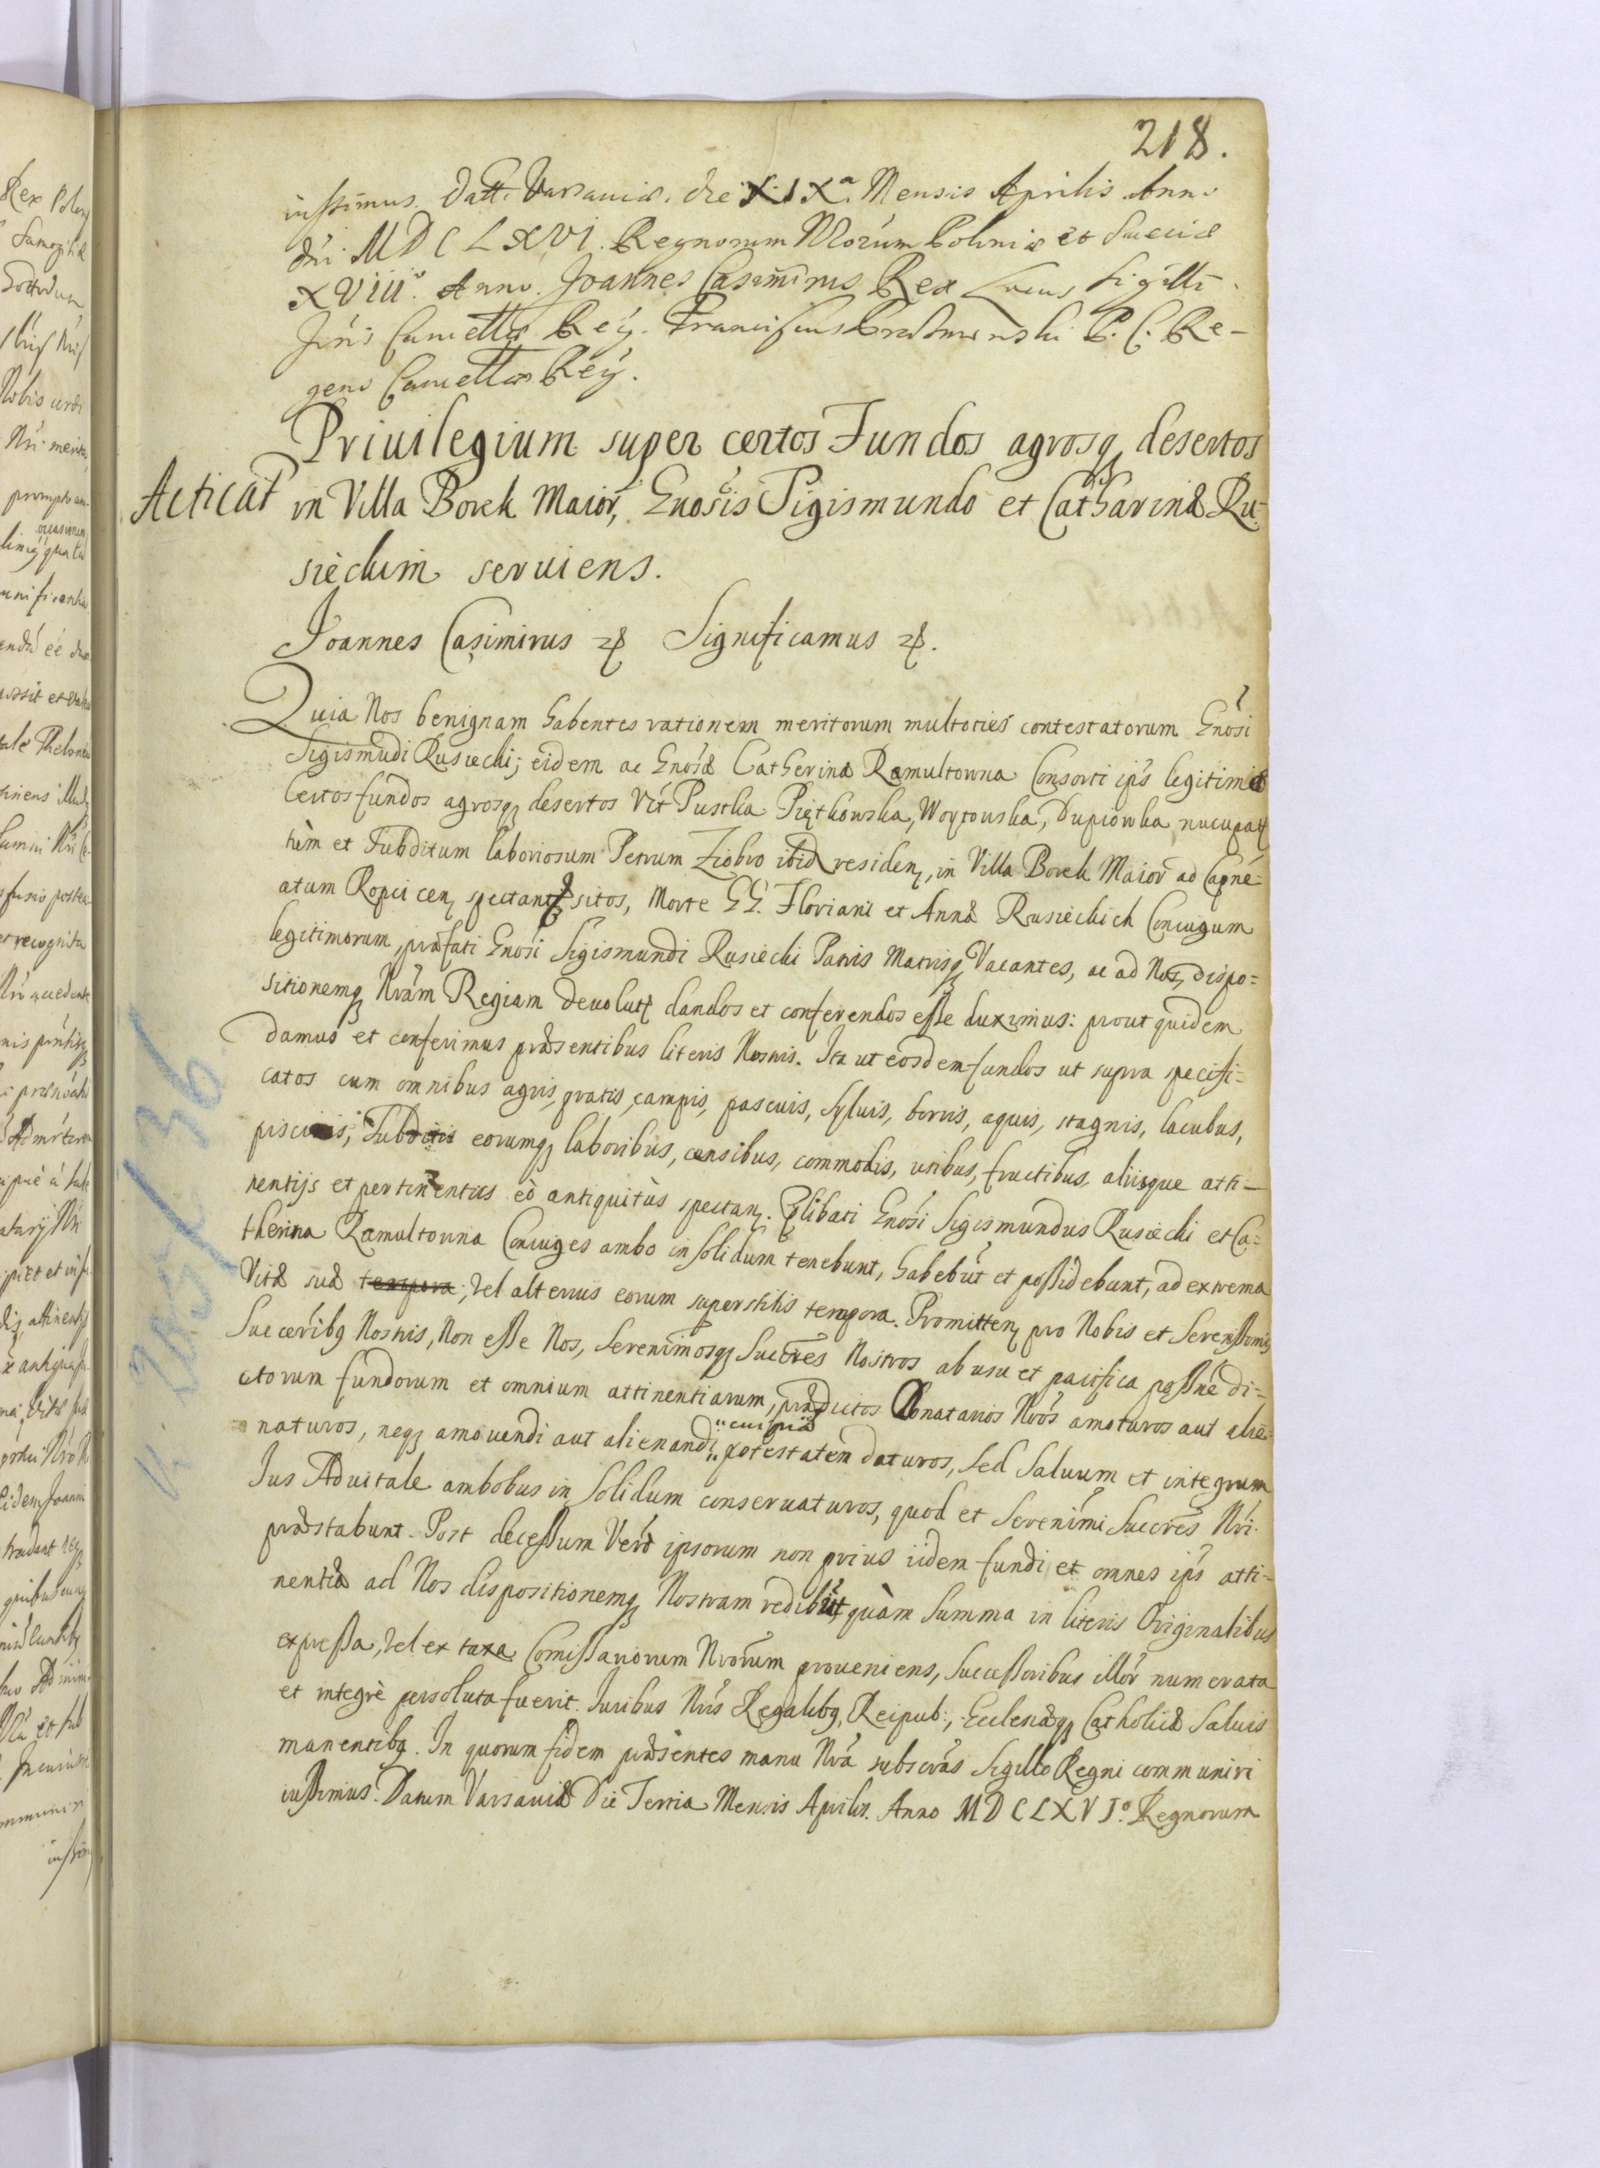 218.
iussimus. Datt. Varsaviæ. die XIXa. Mensis Aprilis Anno
dni MDCLXVI. Regnorum Nrorum Poloniæ et Sueciæ
XVIIIo. Anno. Joannes Casimirus Rex Locus Sigilli
Cancellæ Reg. Franciscus P. C. Re-
gens Cancellæ Reg.
Privilegium super certos Fundos agrosq desertos
Acticat in Villa Borek Maior, Gnosis Sigismundo et Catharinæ Ru-
sieckim serviens.
Joannes Casimirus etc Significamus etc.
Quia Nos benignam habentes rationem meritorum multoties contestatorum Gnosi
Sigismudi Rusiecki; eidem ac Gnosæ Catherinæ Ramultowna Consorti ips legitimæ
Certos fundos agrosq desertos Vt Pustka Piętkowska, Woytowska, Dupiowka nucupat
tùm et Subditum laboriosum Petrum Ziobro ibid residen, in Villa Borek Maior ad Capne-
atum Ropcicen spectant sitos, Morte GG. Floriani et Annæ Rusieckich Coniugum
legitimorum, præfati Gnosi Sigismundi Rusiecki Patris Matrisq Vacantes, ac ad Nos, dispo=
sitionemq Nram Regiam devolut dandos et conferendos esse duximus: prout quidem
damus et conferimus præsentibus literis Nostris. Ita ut eosdem fundos ut supra specifi=
catos cum omnibus agris, pratis, campis, pascuis, sylvis, borris, aquis, stagnis, lacubus,
piscinis, Subditis eorumq laboribus, censibus, commodis, usibus, fructibus, aliisque atti-
nentijs et pertinentiis eò antiquitùs spectan. Plibati Gnosi Sigismundus Rusiecki et Ca=
therina Ramultowna Coniuges ambo in solidum tenebunt, habebut et possidebunt, ad extrema
Vitæ suæ tempora, vel alterius eorum superstitis tempora. Promitten pro Nobis et Serenissimis
Succeribq Nostris, Non esse Nos, Serenimosq Succres Nostros ab usu et pacifica possne di=
ctorum fundorum et omnium attinentiarum, prædictos Donatarios Nros amoturos aut alie-
naturos, neq amovendi aut alienandi cuipiã potestatem daturos, sed Salvum et integrum
Ius Advitale ambobus in solidum conservaturos, quod et Serenimi Succres Nri
præstabunt. Post decessum Verò ipsorum non prius iidem fundi et omnes ips atti-
nentiæ ad Nos dispositionemq Nostram redibut, quàm Summa in literis Originalibus
expressa, vel ex taxa Comissariorum Nrorum proveniens, Successoribus illor numerata
et integrè persoluta fuerit. Iuribus Nris Regalibq, Reipub:, Ecclesiæq Catholicæ Salvis
manentibq. In quorum fidem præsentes manu Nra subscras Sigillo Regni communiri
iussimus. Datum Varsaviæ Die Tertia Mensis Aprilis. Anno MDCLXVIo. Regnorum